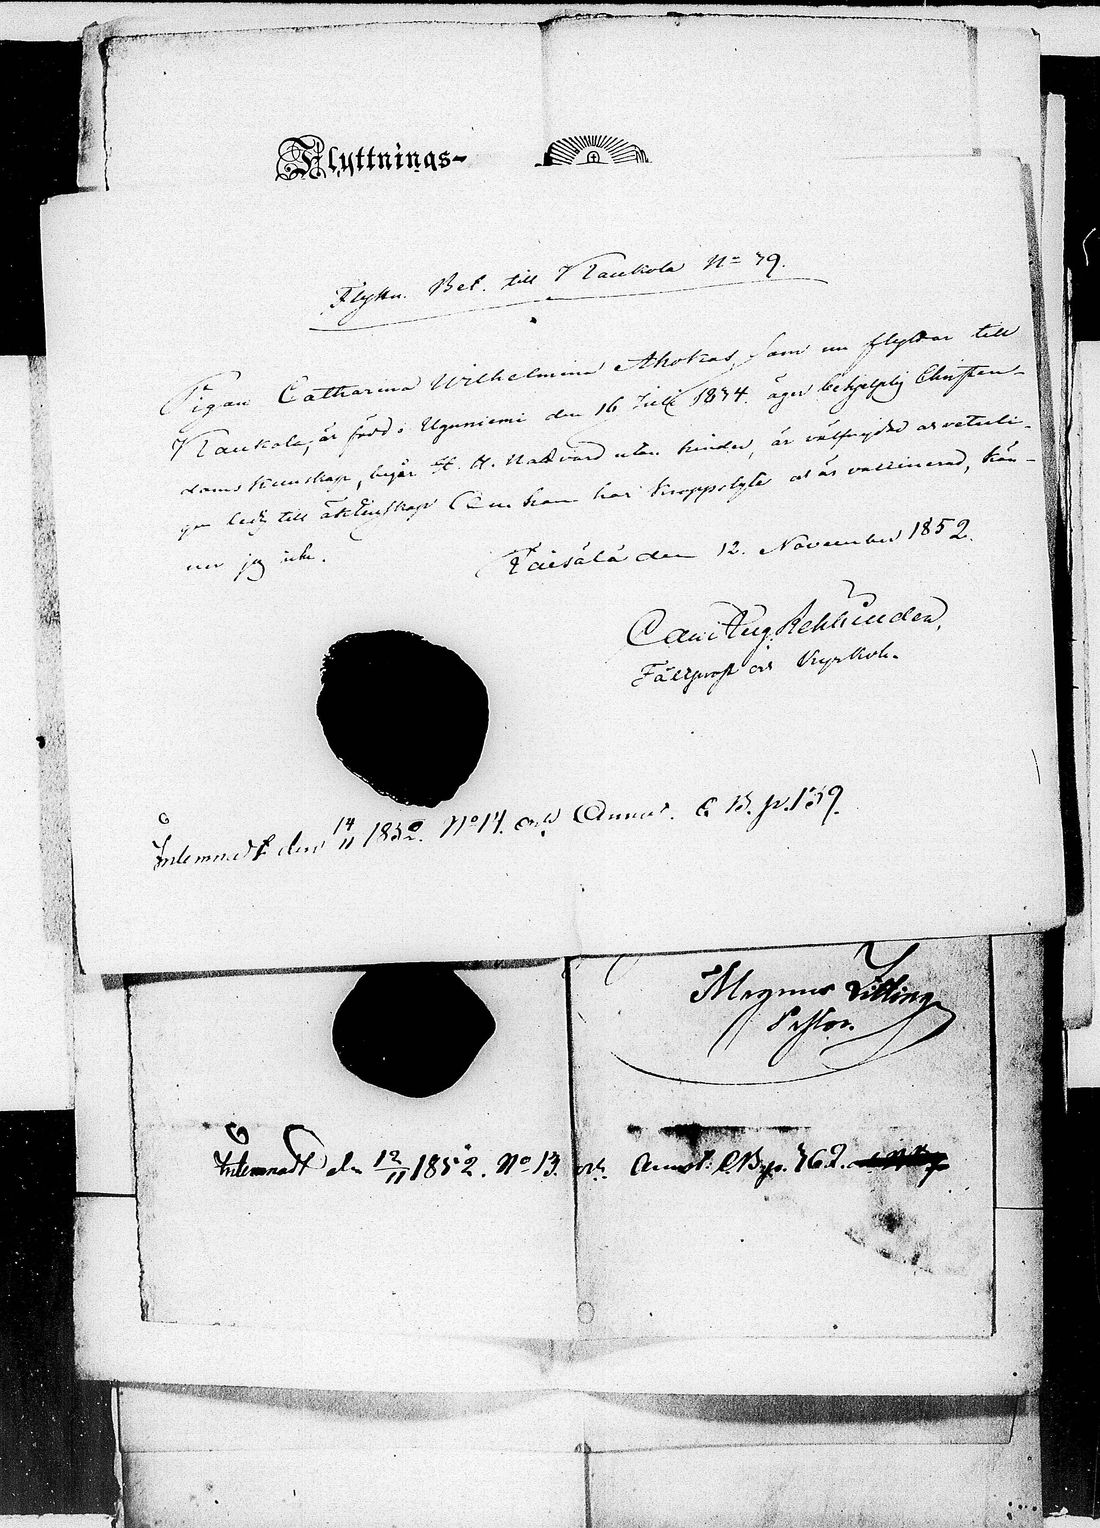 Flyttnings-
Flyttn. Bet. till Kaukola No 79.
Pigan Catharina Wilhelmina Ahokas, som nu flyttar till
Kaukola, är född i Uguniemi den 16 Juli 1834. äger behjelplig Christen-
doms kunskap, begår H. H. Nattvard utan hinder, är välfrejdad och veterli-
gen ledig till äktenskap Om hon har kroppslyte och är vaccinerad, kän-
ner jag icke.
Räisälä den 12. November 1852.
Carl Aug. Rehbinder,
Fältprost och Kyrkoh.
Inlemnadt den 14/11 1852. No 14. och Annot. C. B. p. 139.
Magnus
Pastor.
Inlemnadt den 12/11 1852. No 13. och Annot: C. B. p. 762.